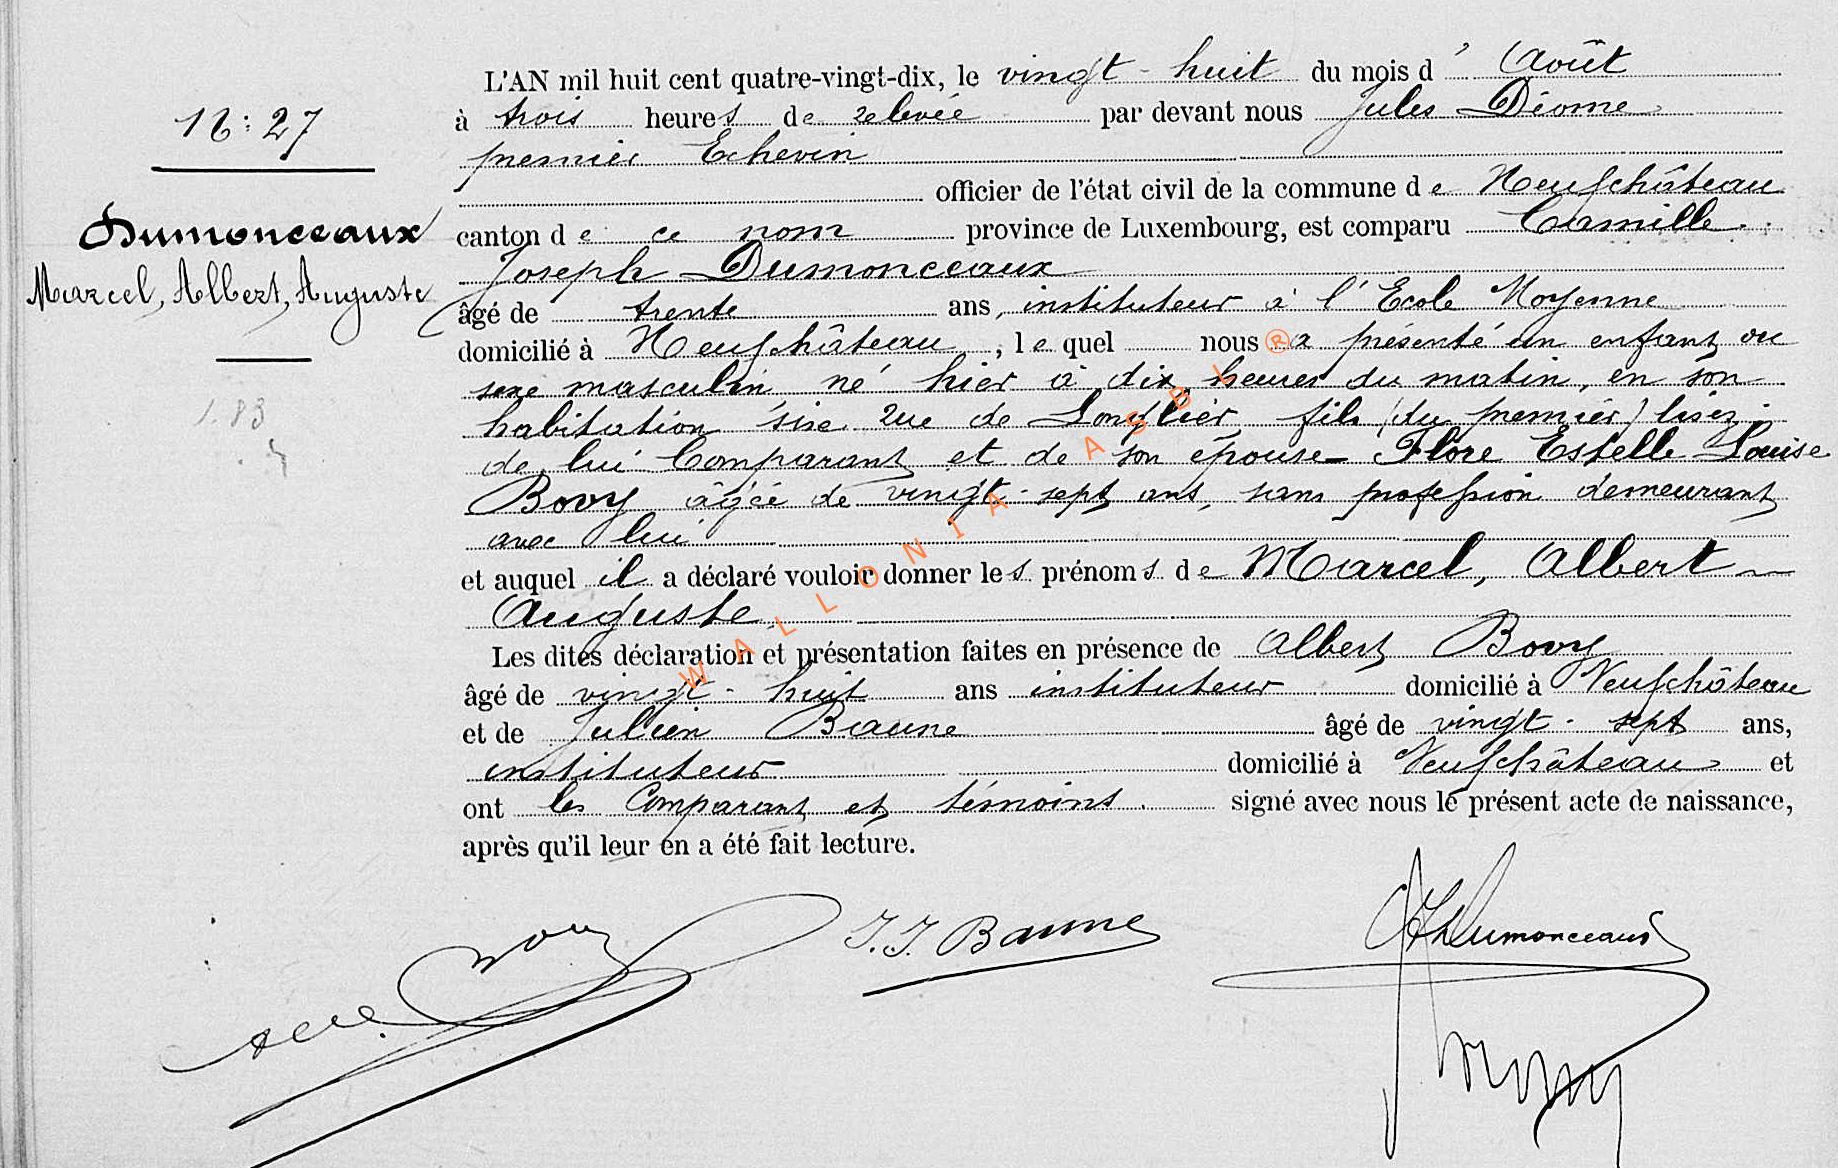 N: 27
Dumonceaux
Marcel, Albert, Auguste
1.83
L'AN mil huit cent quatre-vingt-dix, le vingt-huit du mois d' Août
à trois heures de relevée par devant nous Jules Déome
premier Echevin
officier de l'état civil de la commune de Neufchâteau
canton de ce nom province de Luxembourg, est comparu Camille
Joseph Dumonceaux
âgé de trente ans, instituteur à l'Ecole Moyenne
domicilié à Neufchâteau, lequel nous a présenté un enfant du
sexe masculin né hier à dix heures du matin, en son
habitation sise rue de Longlier, fils (du premier) lisez:
de lui Comparant et de son épouse Flore Estelle Louise
Bovy âgée de vingt-sept ans, sans profession demeurant
avec lui
et auquel il a déclaré vouloir donner les prénoms de Marcel, Albert
Auguste,
Les dites déclaration et présentation faites en présence de Albert Bovy
âgé de vingt-huit ans instituteur domicilié à Neufchâteau
et de Julien Baune âgé de vingt-sept ans,
instituteur domicilié à Neufchâteau et
ont les Comparant et témoins. signé avec nous le présent acte de naissance,
après qu'il leur en a été fait lecture.
J.J. Baune
Dumonceaux
WALLONIA ASBL ®